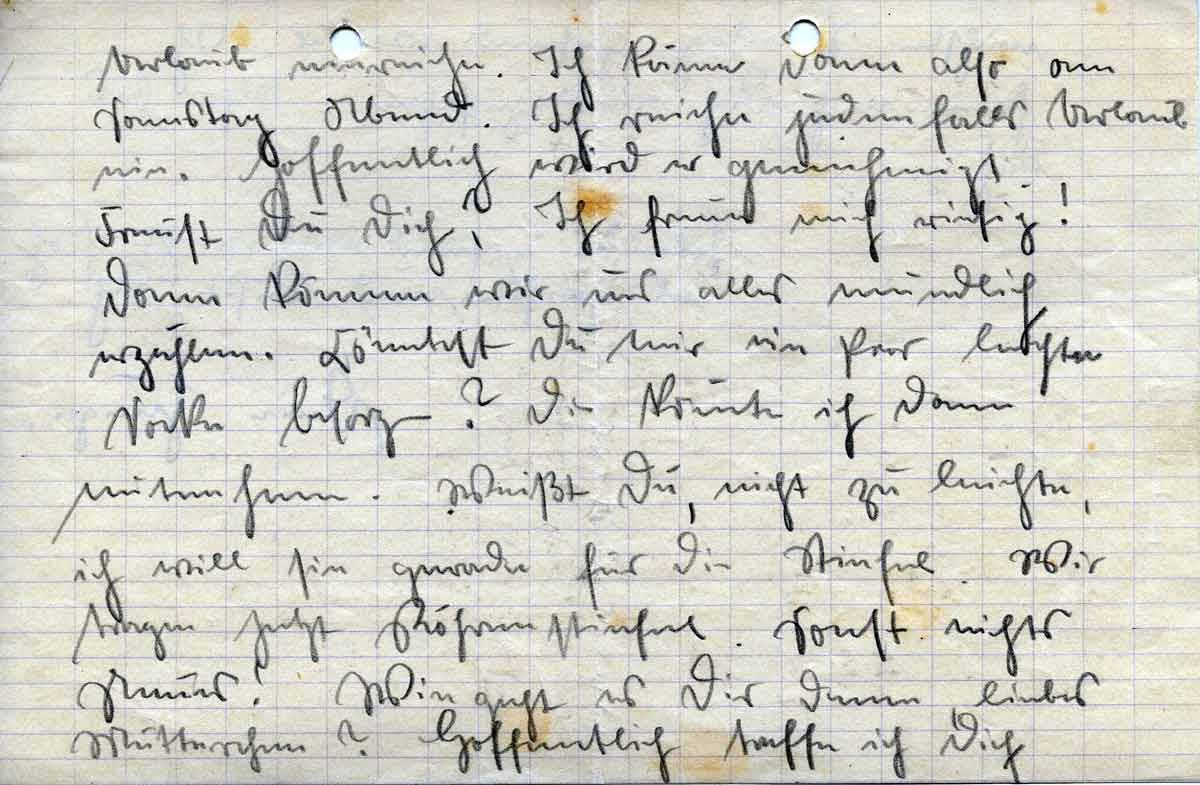 Urlaub einreichen. Ich käme dann also am
Samstag Abend. Ich reiche jedenfalls Urlaub
ein. Hoffentlich wird er genehmigt.
Freust Du Dich? Ich freue mich riesig!
Dann können wir uns alles mündlich
erzählen. Könntest Du mir ein Paar leichte
Socken besorgen? Die könnte ich dann
mitnehmen. Weißt Du, nicht zu leichte,
ich will sie gerade für die Stiefel. Wir
tragen jetzt Röhrenstiefel. Sonst nichts
Neues! Wie geht es Dir denn liebes
Mütterchen? Hoffentlich treffe ich Dich